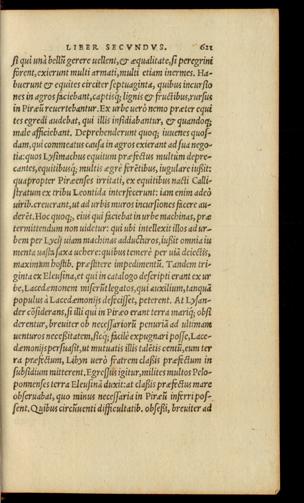 LIBER SECVNDVS. 621
si quì unà bellũ gerere uellent, & æqualitate, si peregrini
forent, exierunt multi armati, multi etiam inermes. Ha-
buerunt & equites circiter septuaginta, quibus incursio
nes in agros faciebant, captisq; lignis & fructibus, rursus
in Piræũ reuertebantur. Ex urbe uerò nemo præter equi
tes egredi audebat, qui illis insidiabantur, & quandoq;
male afficiebant. Deprehenderunt quoq; iuuenes quos-
dam, qui commeatus causa in agros exierant ad sua nego-
tia: quos Lysimachus equitum præfectus multùm depre-
cantes, equitibusq; multis ægrè ferẽtibus, iugulare iußit:
quapropter Piræenses irritati, ex equitibus nacti Calli-
stratum ex tribu Leontida interfecerunt: iam enim adeò
uirib. creuerant, ut ad urbis muros incursiones facere au-
derẽt. Hoc quoq;, eius qui faciebat in urbe machinas, præ
termittendum non uidetur: qui ubi intellexit illos ad ur-
bem per Lycij uiam machinas adducturos, iußit omnia iu
menta uasta saxa uehere: quibus temerè per uiã deiectis,
maximum hostib. præstitere impedimentũ. Tandem tri-
ginta ex Eleusina, et qui in catalogo descripti erant ex ur
be, Lacedæmonem miserũt legatos, qui auxilium, tanquã
populus à Lacedæmonijs defecisset, peterent. At Lysan-
der cõsiderans, si illi qui in Piræo erant terra mariq; obsi
derentur, breuiter ob necessariorũ penuriã ad ultimam
uenturos necessitatem, sicq; facilè expugnari posse, Lace-
dæmonijs persuasit, ut mutuatis illis talẽtis centũ, eum ter
ra præfectum, Libyn uerò fratrem claßis præfectum in
subsidium mitterent. Egressus igitur, milites multos Pelo-
ponnenses terra Eleusinã duxit: at claßis præfectus mare
obseruabat, quo minus necessaria in Piræũ inferri pos-
sent. Quibus circũuenti difficultatib. obseßi, breuiter ad